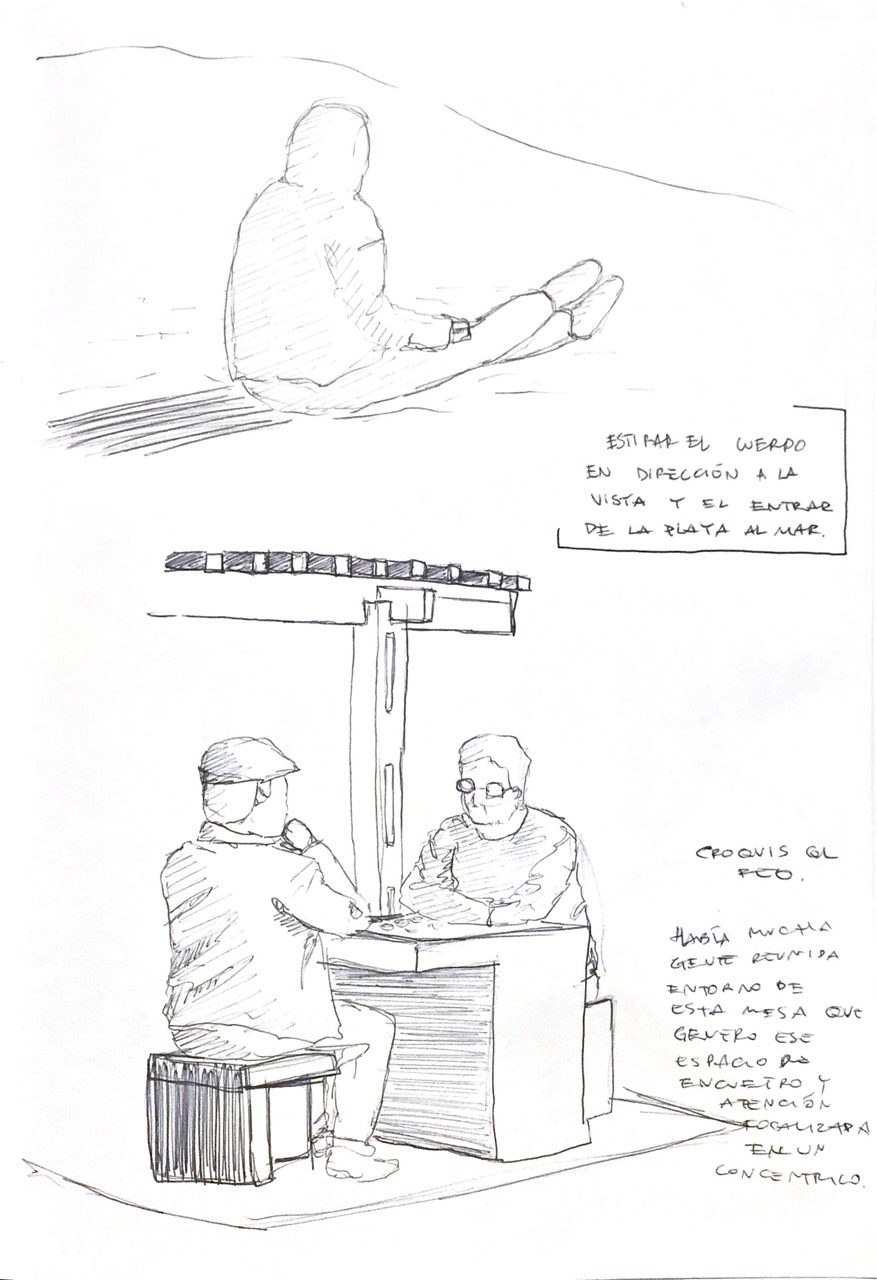 ESTIRAR EL CUERPO
EN DIRECCIÓN A LA
VISTA Y EL ENTRAR
DE LA PLAYA AL MAR.
CROQUIS QL
FEO.
HABÍA MUCHA
GENTE REUNIDA
ENTORNO DE
ESTA MESA QUE
GENERO ESE
ESPACIO DO
ENCUETRO Y
ATENCIÓN
FOCALIZADA
EN UN
CONCENTRICO.